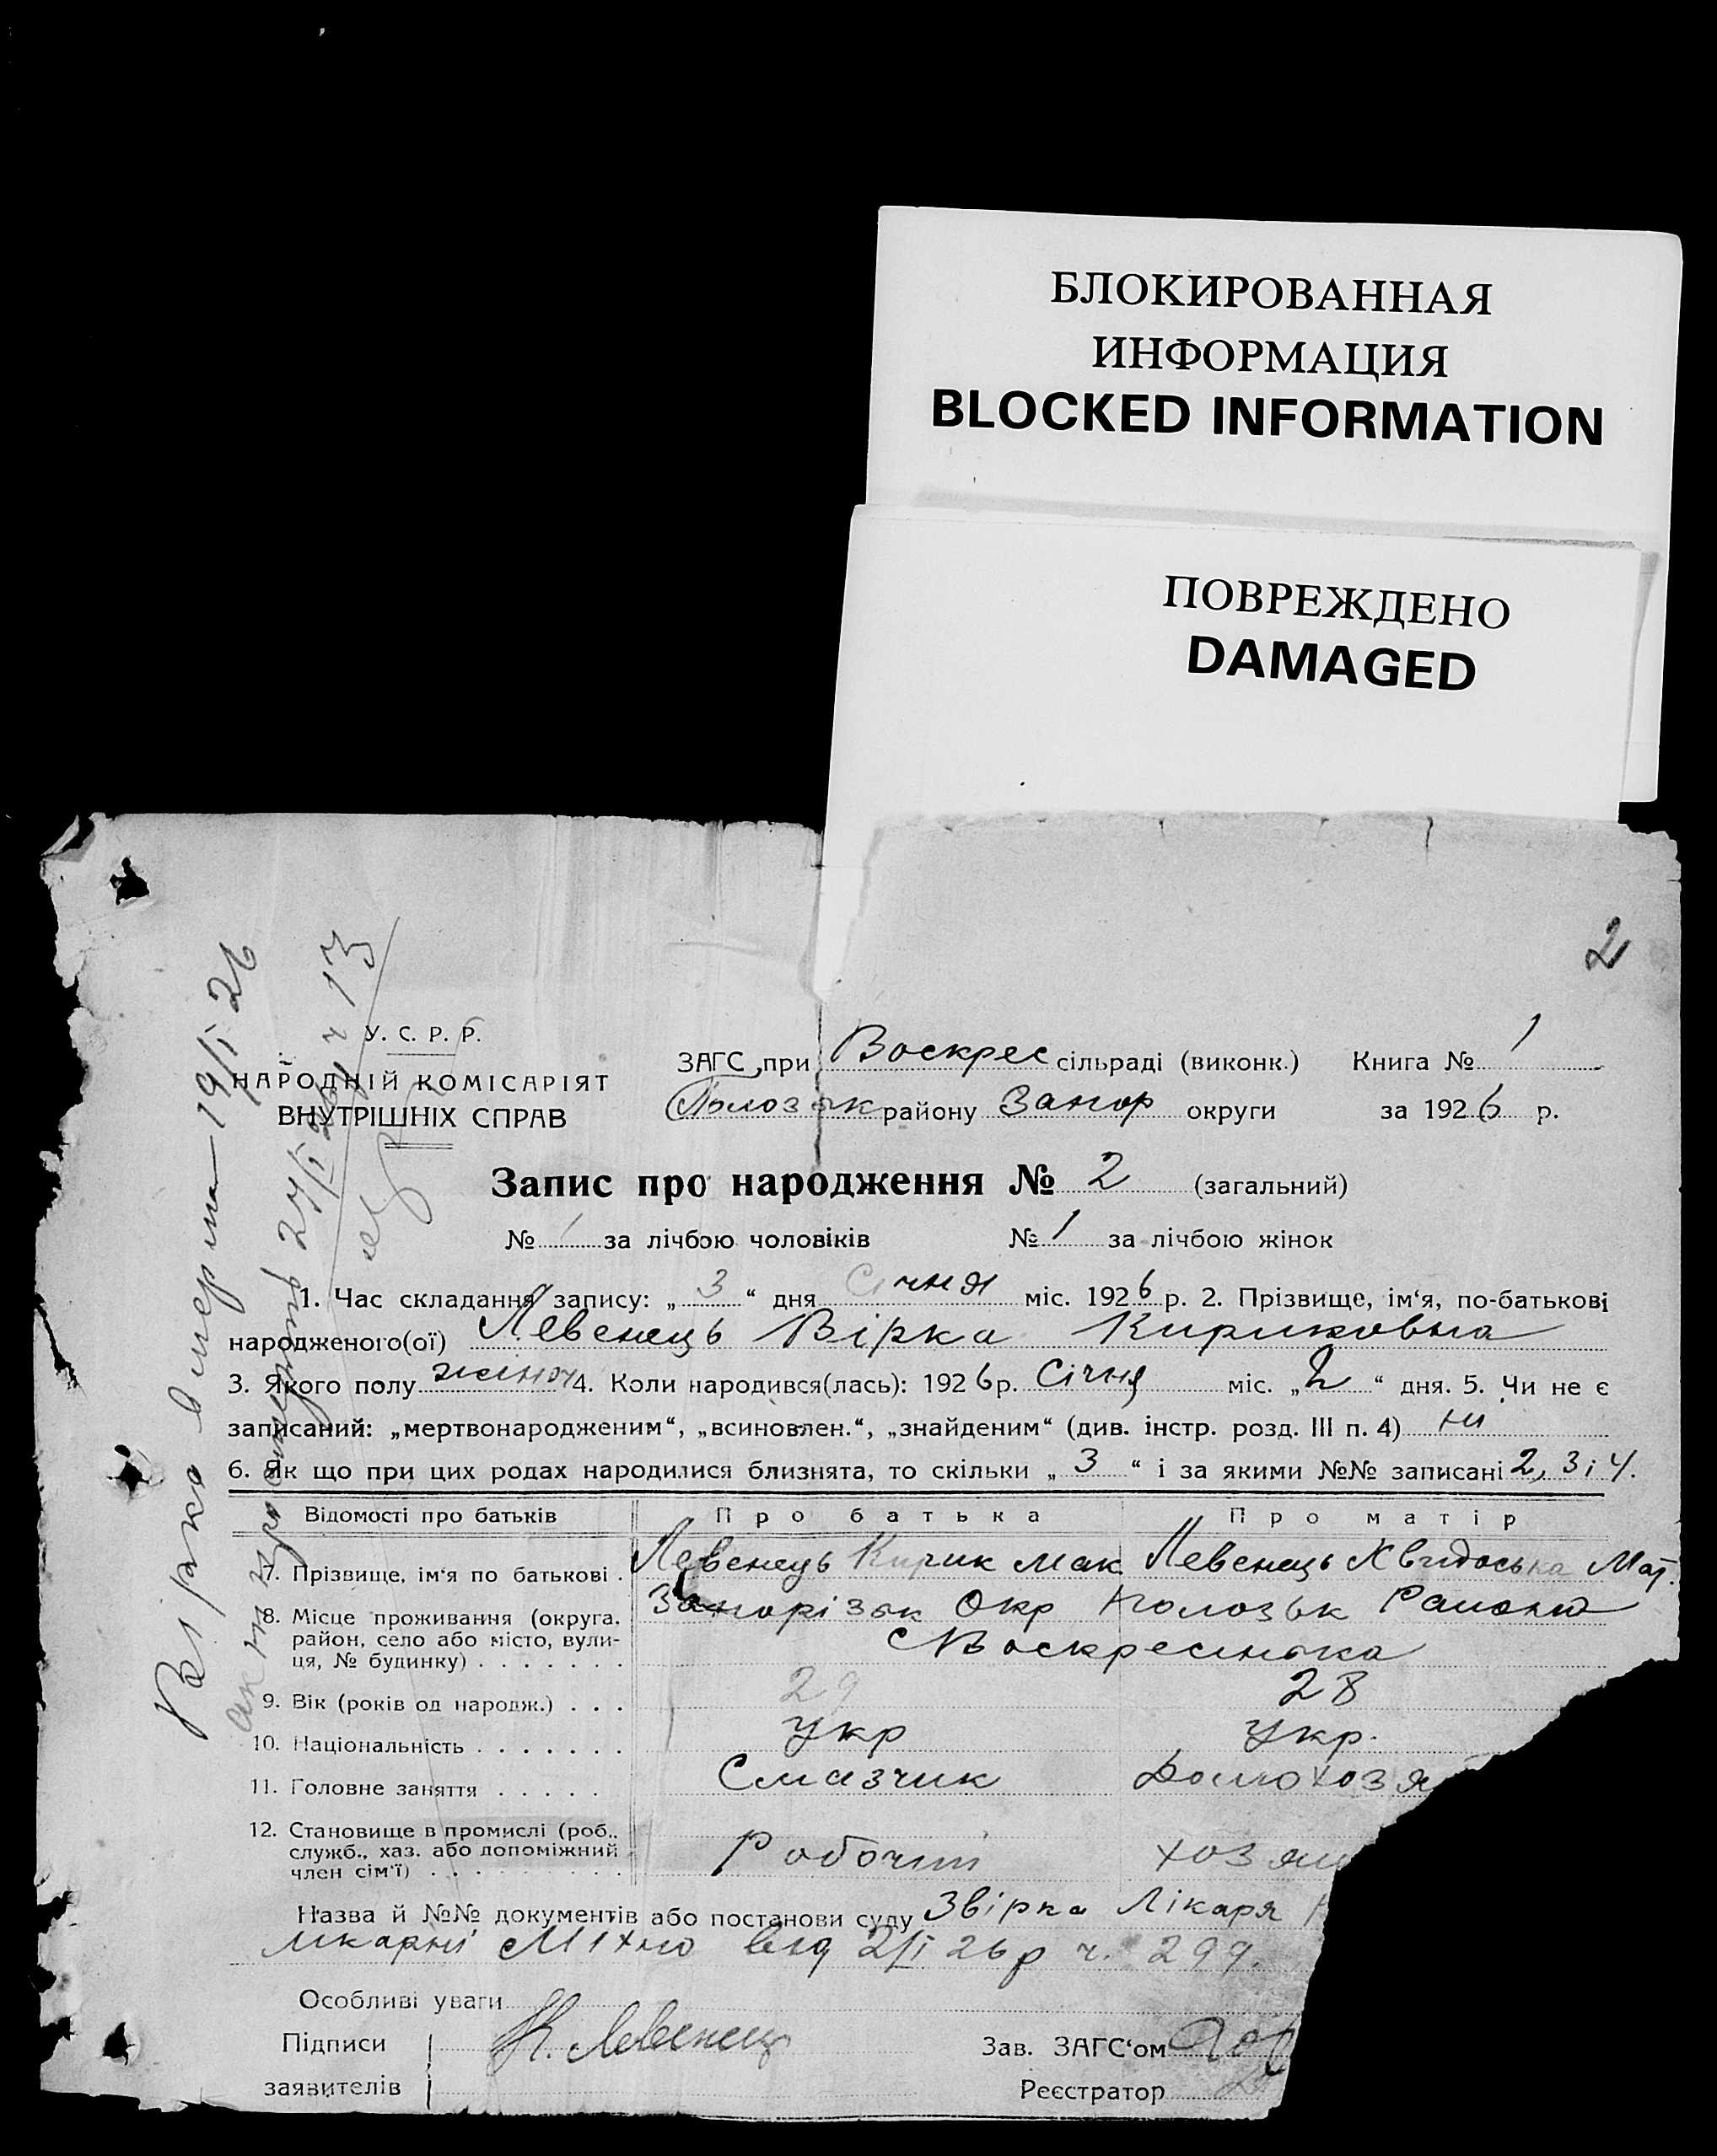 БЛОКИРОВАННАЯ
ИНФОРМАЦИЯ
BLOCKED INFORMATION
ПОВРЕЖДЕНО
DAMAGED
2
У. С. Р. Р.
НАРОДНІЙ КОМІСАРІЯТ
ВНУТРІШНІХ СПРАВ
ЗАГС при Воскрес сільраді (виконк.) Книга № 1
Пологзьк району Запор округи за 1926 р.
Запис про народження № 2 (загальний)
№ за лічбою чоловіків № 1 за лічбою жінок
1. Час складання запису: „ 3 “ дня Січня міс. 1926 р. 2. Прізвище, ім‘я, по-батькові
народженого(ої) Левенець Вірка Кириковна
3. Якого полу жіноч 4. Коли народився(лась): 1926 р. Січня міс. „ 2 “ дня. 5. Чи не є
записаний: „мертвонародженим“, „всиновлен.“, „знайденим“ (див. інстр. розд. III п. 4) ні
6. Як що при цих родах народилися близнята, то скільки „ 3 “ і за якими №№ записані 2, 3 і 4.
Відомості про батьків Про батька Про матір
7. Прізвище, ім‘я по батькові . Левенець Кирик Мак Левенець Мат.
8. Місце проживання (округа, район, село або місто, вули-
ця, № будинку) . . . . . . . Запорізьк Окр Район
Воскресенька
9. Вік (років од народж.) . . . 29 28
10. Національність . . . . . . . Укр Укр.
11. Головне заняття . . . . . Смазчик Домохозя
12. Становище в промислі (роб.,
служб., хаз. або допоміжний
член сім‘ї) . . . . . . . . . Робочий хозяй
Назва й №№ документів або постанови суду Лікаря
лікарні від 2/I 26 р ч. 299.
Особливі уваги
Підписи К. Левенець Зав. ЗАГС‘ом
заявителів Реєстратор
Вірка вмерла 19/I 26
27/I 26 ч 13